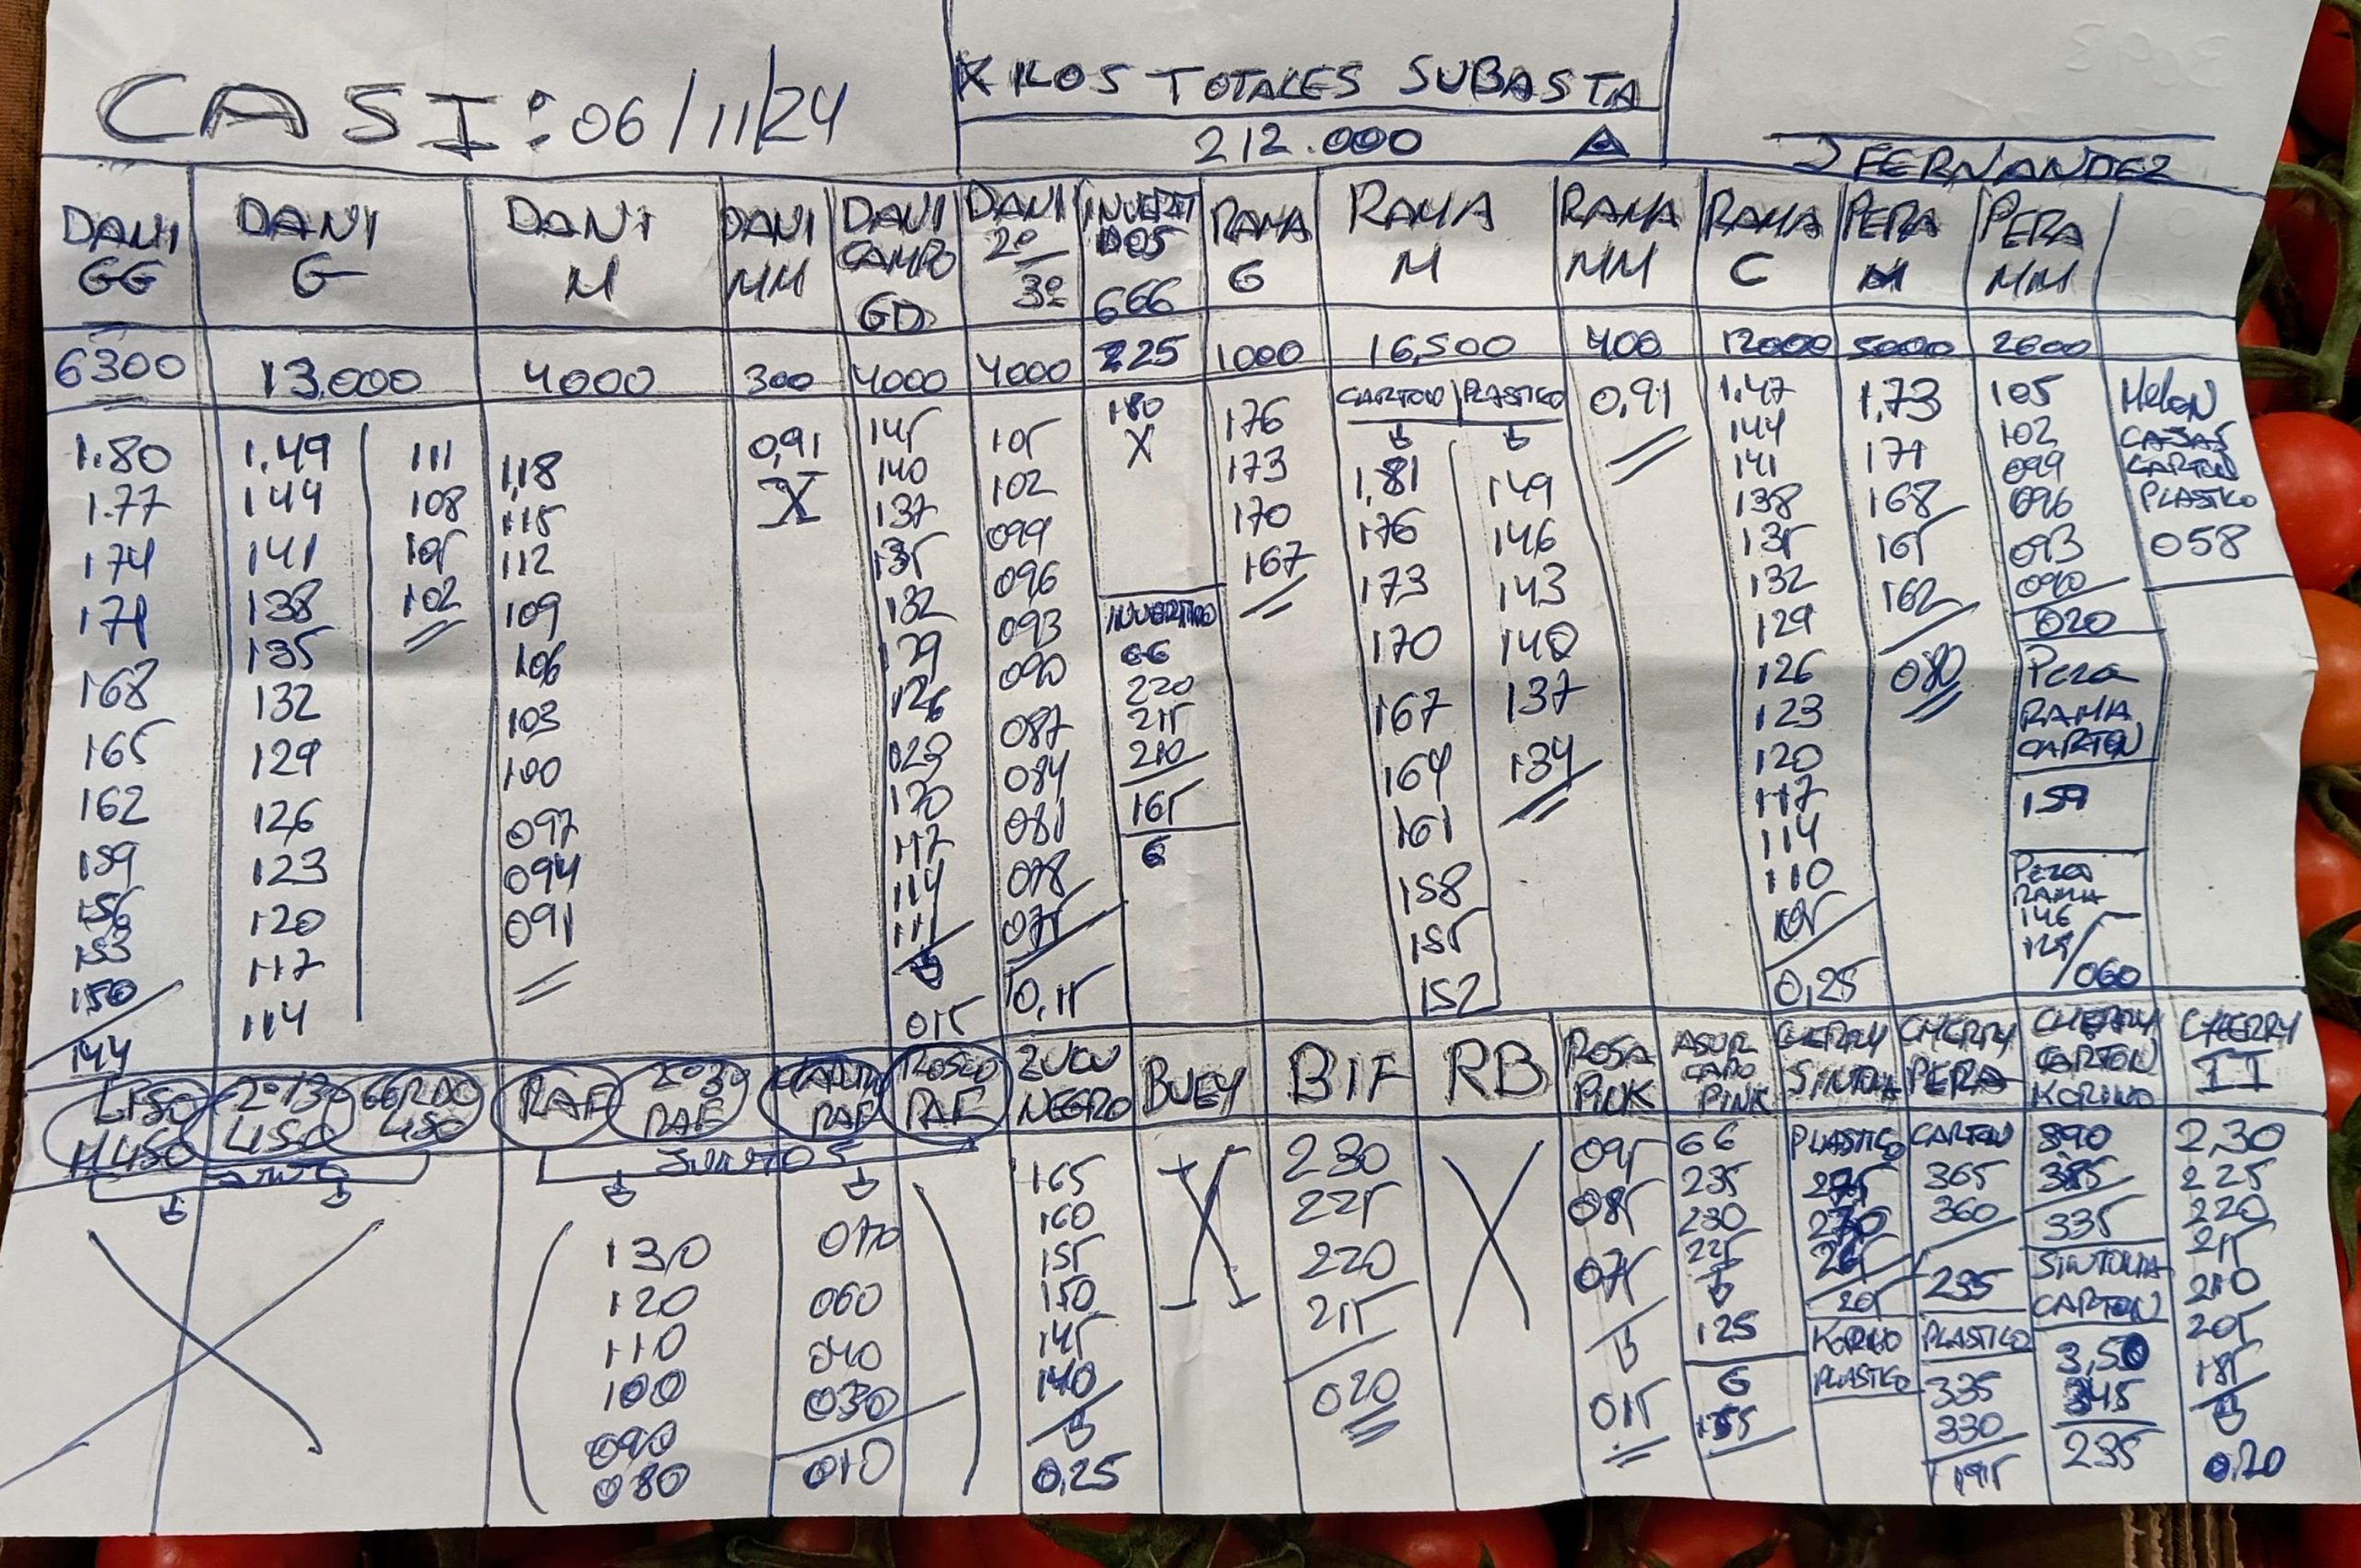 CASI: 06/11/24
KILOS TOTALES SUBASTA
212.000
J FERNANDEZ
DANI GG
6300
1.80
1.77
174
171
168
165
162
159
156
153
150
144
DANI G
13.000
1.49
144
141
138
135
132
129
126
123
120
117
114
111
108
105
102
DANI M
4000
1,18
115
112
109
106
103
100
097
094
091
DANI MM
300
0,91
X
DANI CAMPO GD
4000
145
140
137
135
132
129
126
023
120
117
114
111
015
DANI 2º 3º
4000
105
102
099
096
093
090
087
084
081
078
075
0,15
INVERTIDOS 666
225
180
X
INVERTIDO
GG
220
215
210
165
G
RAMA G
1000
176
173
170
167
RAMA M
16,500
CARTON
1,81
176
173
170
167
164
161
158
155
152
PLASTICO
149
146
143
140
137
134
RAMA MM
400
0,91
RAMA C
12000
1,47
144
141
138
135
132
129
126
123
120
117
114
110
105
0,25
PERA M
5000
1,73
171
168
165
162
080
PERA MM
2600
105
102
099
096
093
090
020
PERA
RAMA
CARTON
159
PERA
RAMA
146
060
MELON
CAJAS
CARTON
PLASTICO
058
LISO
M LISO
2º/3º
LISO
GERDO
LISO
RAF
2º 3º
RAF
RAF
ROSCO
RAF
JUNTOS
130
120
110
100
090
080
070
060
040
030
010
ZUCU
NEGRO
165
160
155
150
145
140
0,25
BUEY
X
BIF
230
225
220
215
020
RB
X
ROSA
PINK
095
085
075
015
ASUR
CADO
PINK
GG
235
230
225
125
G
155
CHERRY
SINTONIA
PLASTICO
275
270
265
205
KORINO
PLASTICO
CHERRY
PERA
CARTON
365
360
235
PLASTICO
335
330
195
CHERRY
CARTON
KORINO
390
385
335
SINTONIA
CARTON
3,50
345
235
CHERRY
II
2,30
225
220
215
210
205
185
0,20